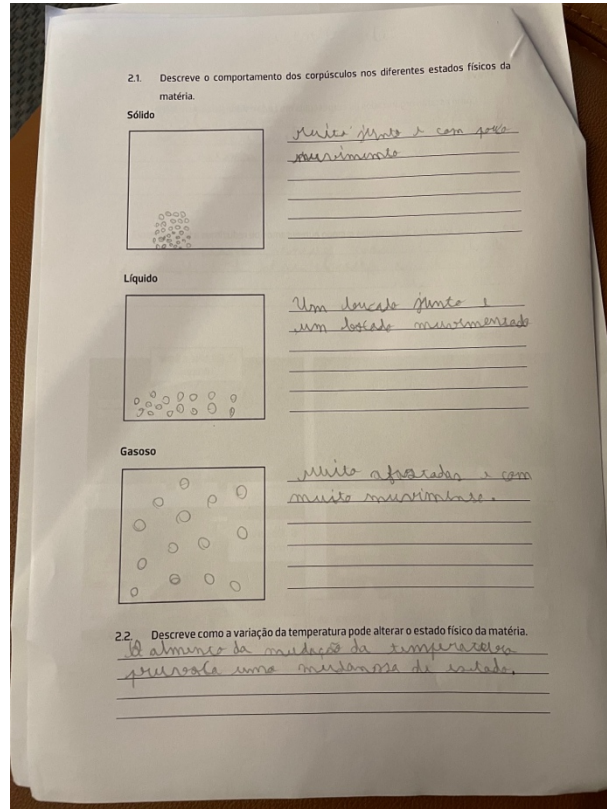 2.1. Descreve o comportamento dos corpúsculos nos diferentes estados físicos da
matéria.
Sólido
Muito junto e com poco
muvimento
Líquido
Um boucado junto e
um bocado muvimentado
Gasoso
Muito afastadas e com
muito muvimento.
2.2. Descreve como a variação da temperatura pode alterar o estado físico da matéria.
almenço da mudaçao da temperatura
provoca uma mudanssa de estado.